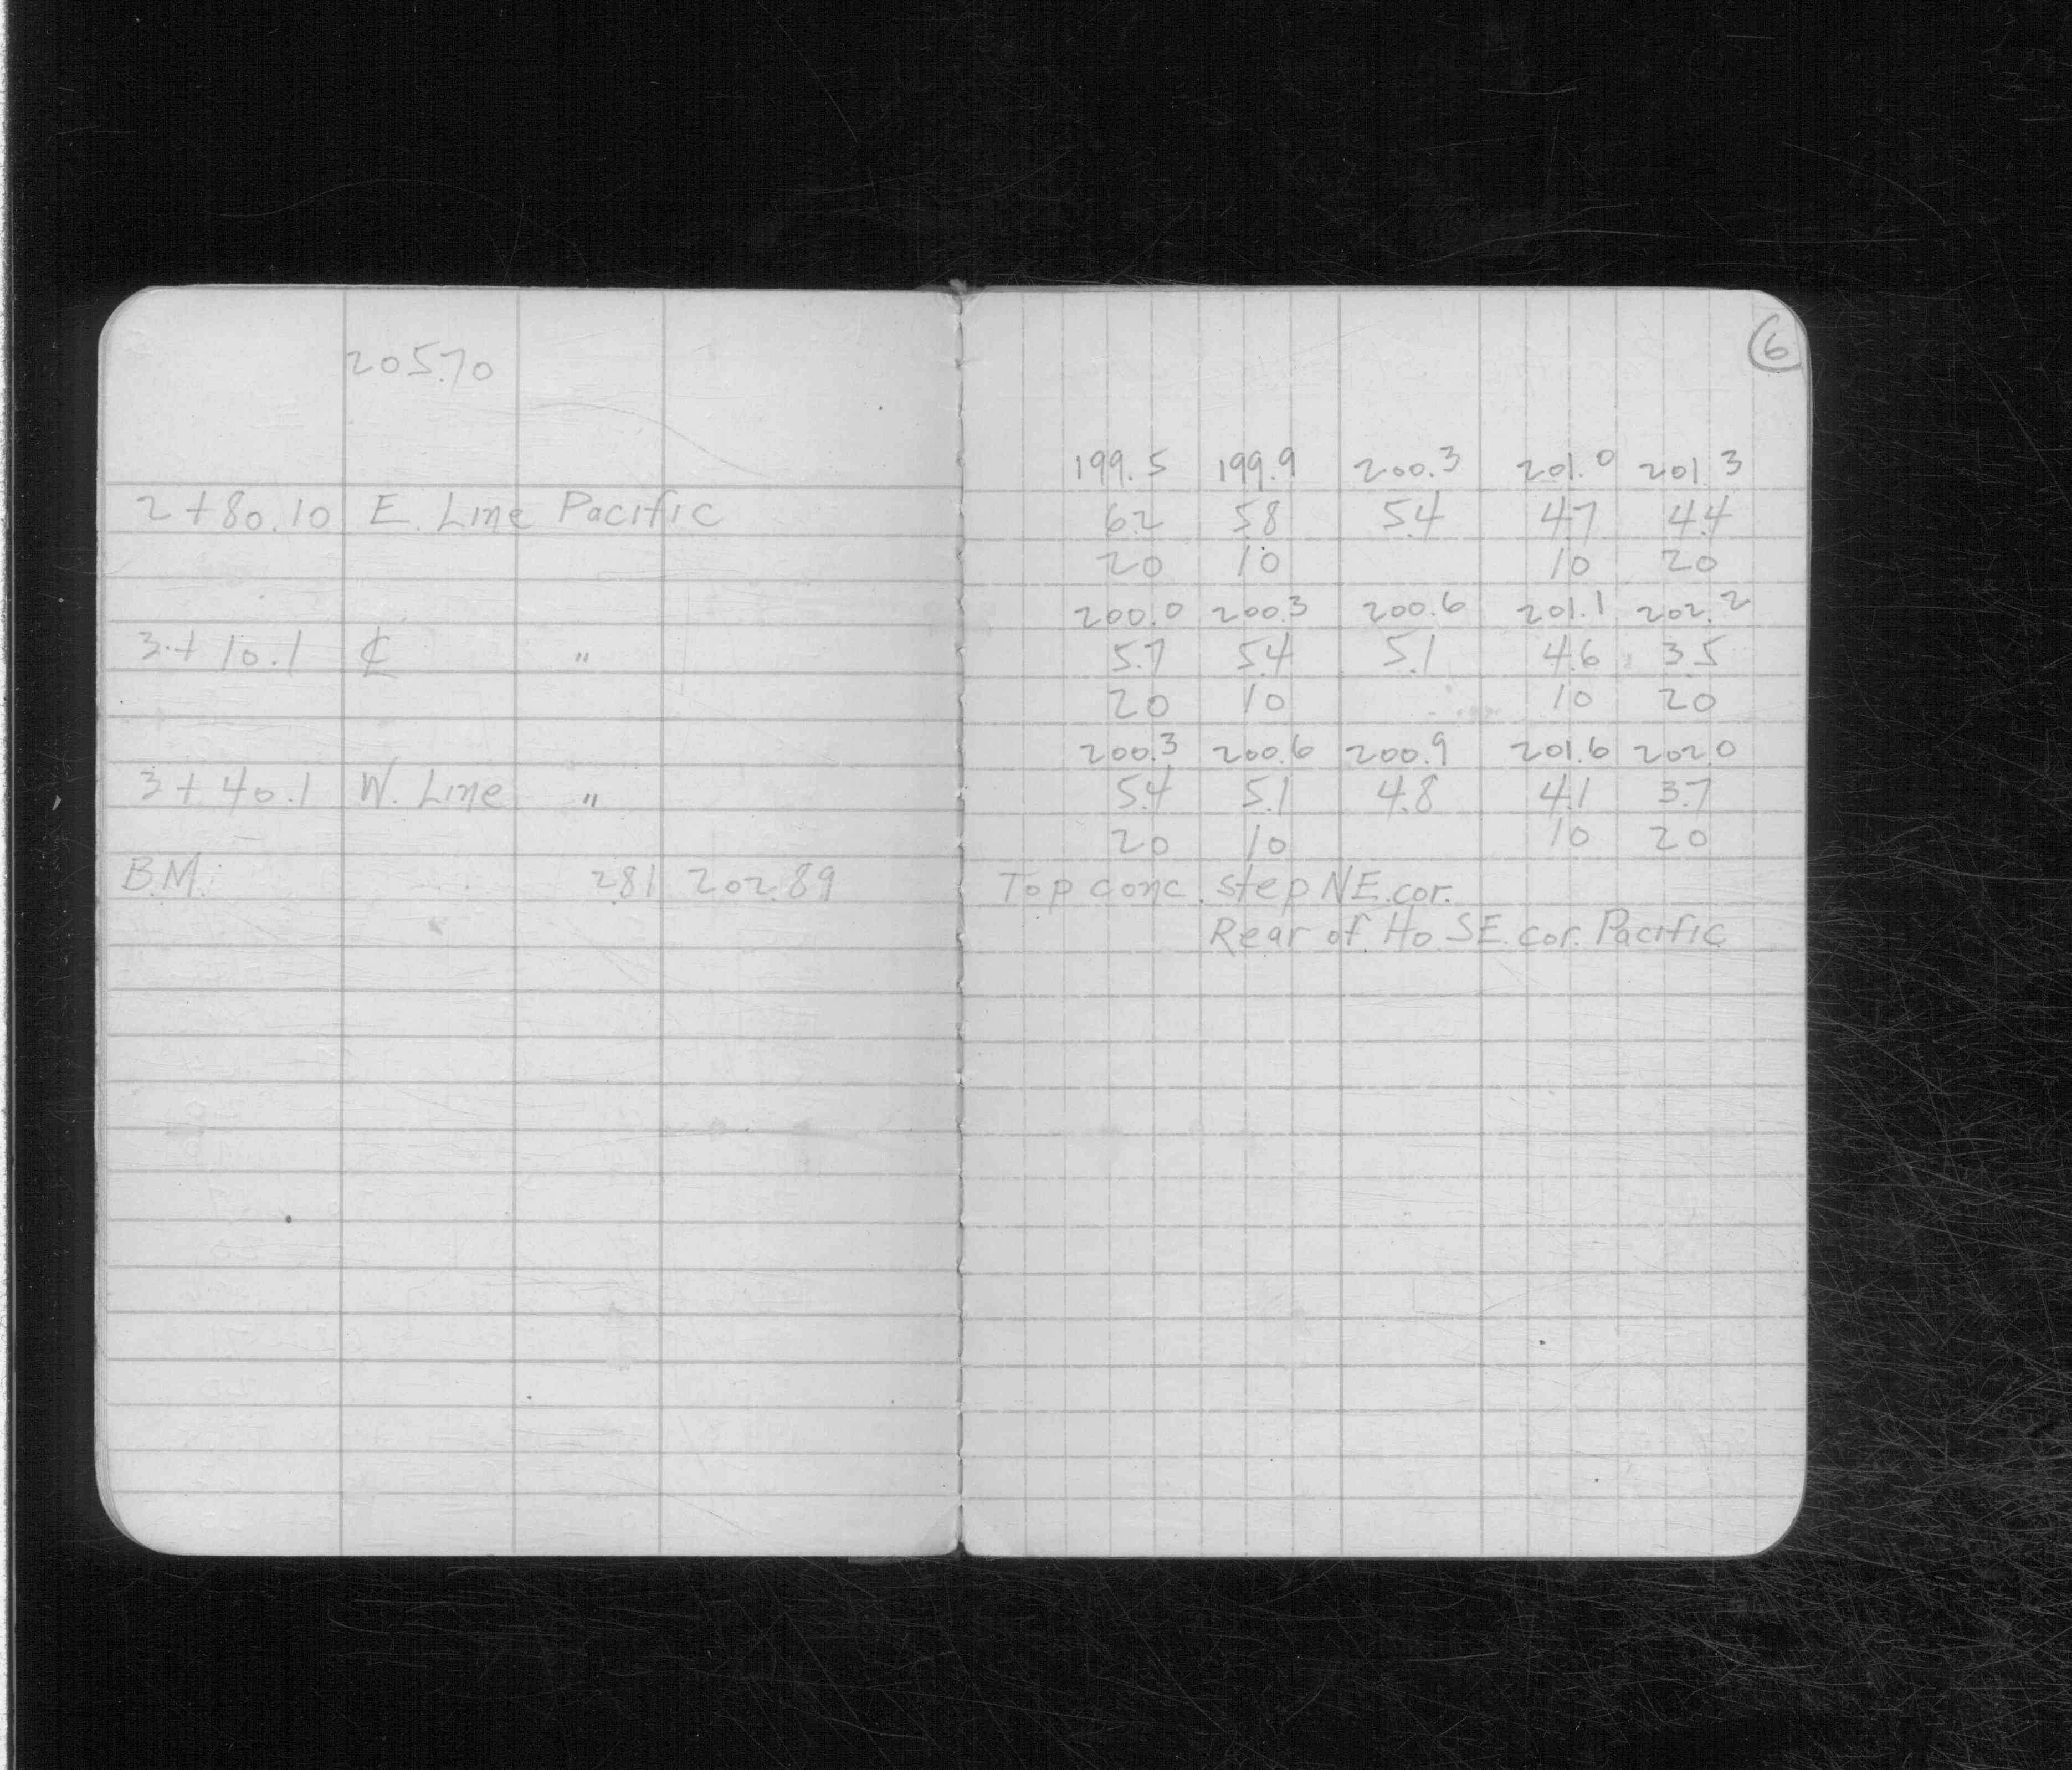 205.70
2+80.10 E. Line Pacific
3+10.1 ℄ "
3+40.1 W. Line "
B.M. 2.81 202.89
6
199.5 199.9 200.3 201.0 201.3
6.2 5.8 5.4 4.7 4.4
20 10 10 20
200.0 200.3 200.6 201.1 202.2
5.7 5.4 5.1 4.6 3.5
20 10 10 20
200.3 200.6 200.9 201.6 202.0
5.4 5.1 4.8 4.1 3.7
20 10 10 20
Top conc. step NE. cor.
Rear of Ho. SE. cor. Pacific